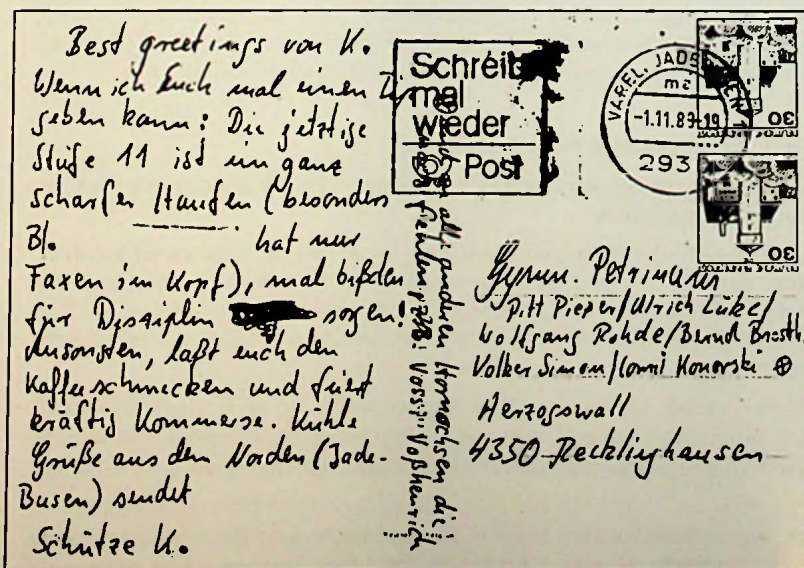 Best greetings von K.
Wenn ich Euch mal einen
geben kann: Die jetzige
Stufe 11 ist ein ganz
scharfer Haufen (besonders
Bl. hat nur
Faxen im Kopf), mal bißchen
für Disziplin sorgen!
Ansonsten, laßt euch den
Kaffee schmecken und feiert
kräftig Kommerse. Kühle
Grüße aus dem Norden (Jade-
Busen) sendet
Schütze K.
alle anderen Hornochsen die
fehlen, z.B.: Vossi: Voßhenrich
Schreib
mal
wieder
Post
VAREL, JADEBUSEN 1
ma
-1.11.89-19
293
30
30
Gymn. Petrinum
Pitt Pieper/Ulrich Lüke/
Wolfgang Rohde/Bernd
Volker Simon/Conni Konorski ⊕
Herzogswall
4350 Recklinghausen